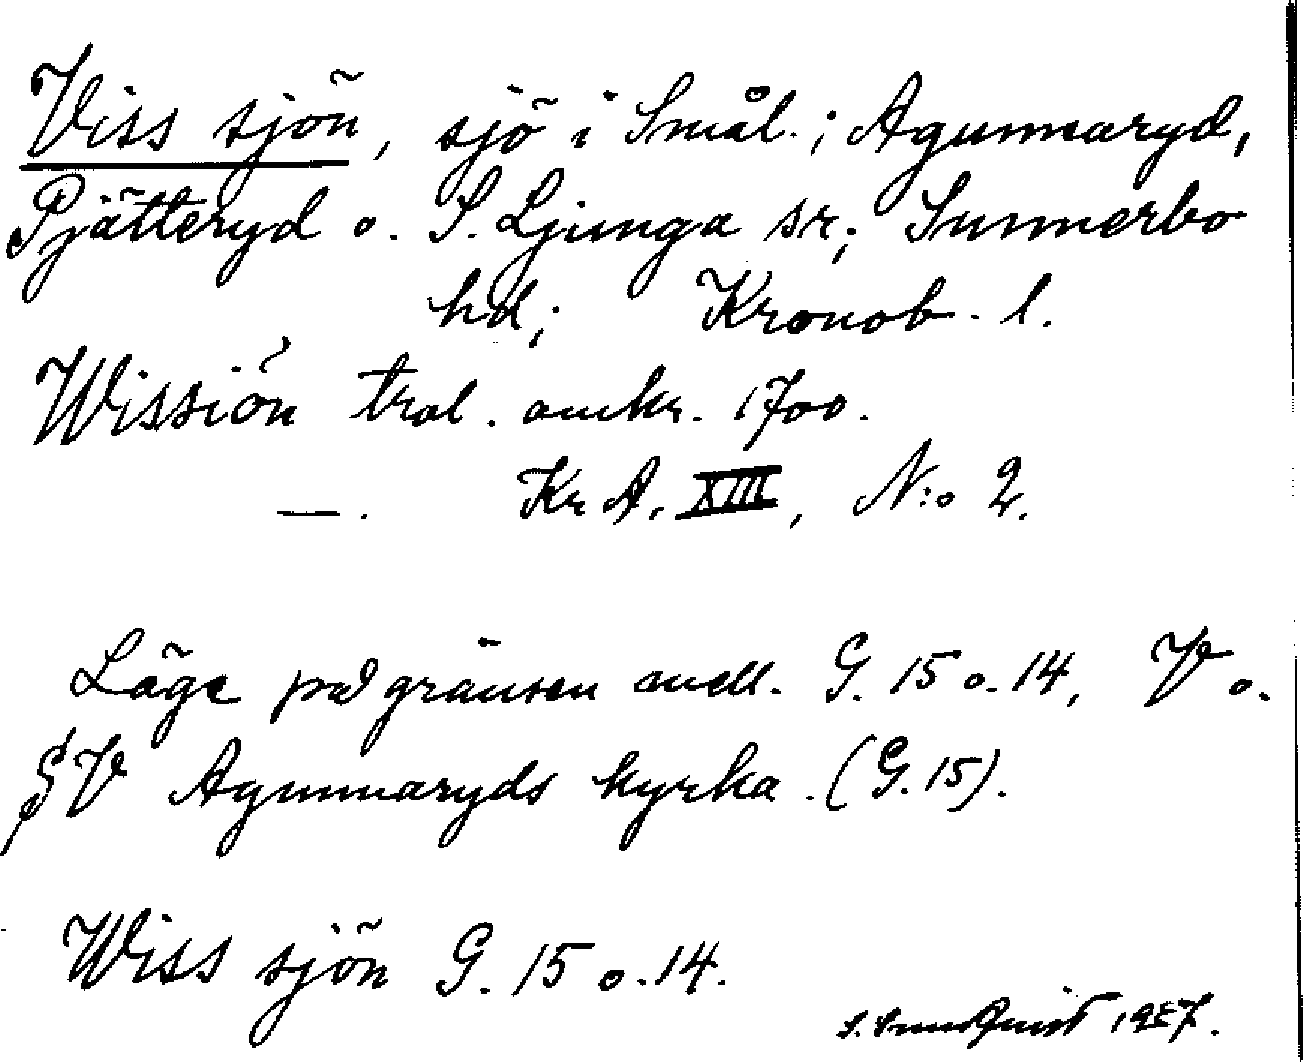 Viss sjön, sjö i Smål.; Agunnaryd,
Pjätteryd o. S. Ljunga sr; Sunnerbo
hd; Kronob. l.
Wissiön tral. omkr. 1700.
—. Kr A. XIII, N:o 2.
Läge på gränsen mell. G. 15 o. 14, V o.
SV Agunnaryds kyrka. (G. 15).
Wiss sjön G. 15 o. 14.
S. 1927.